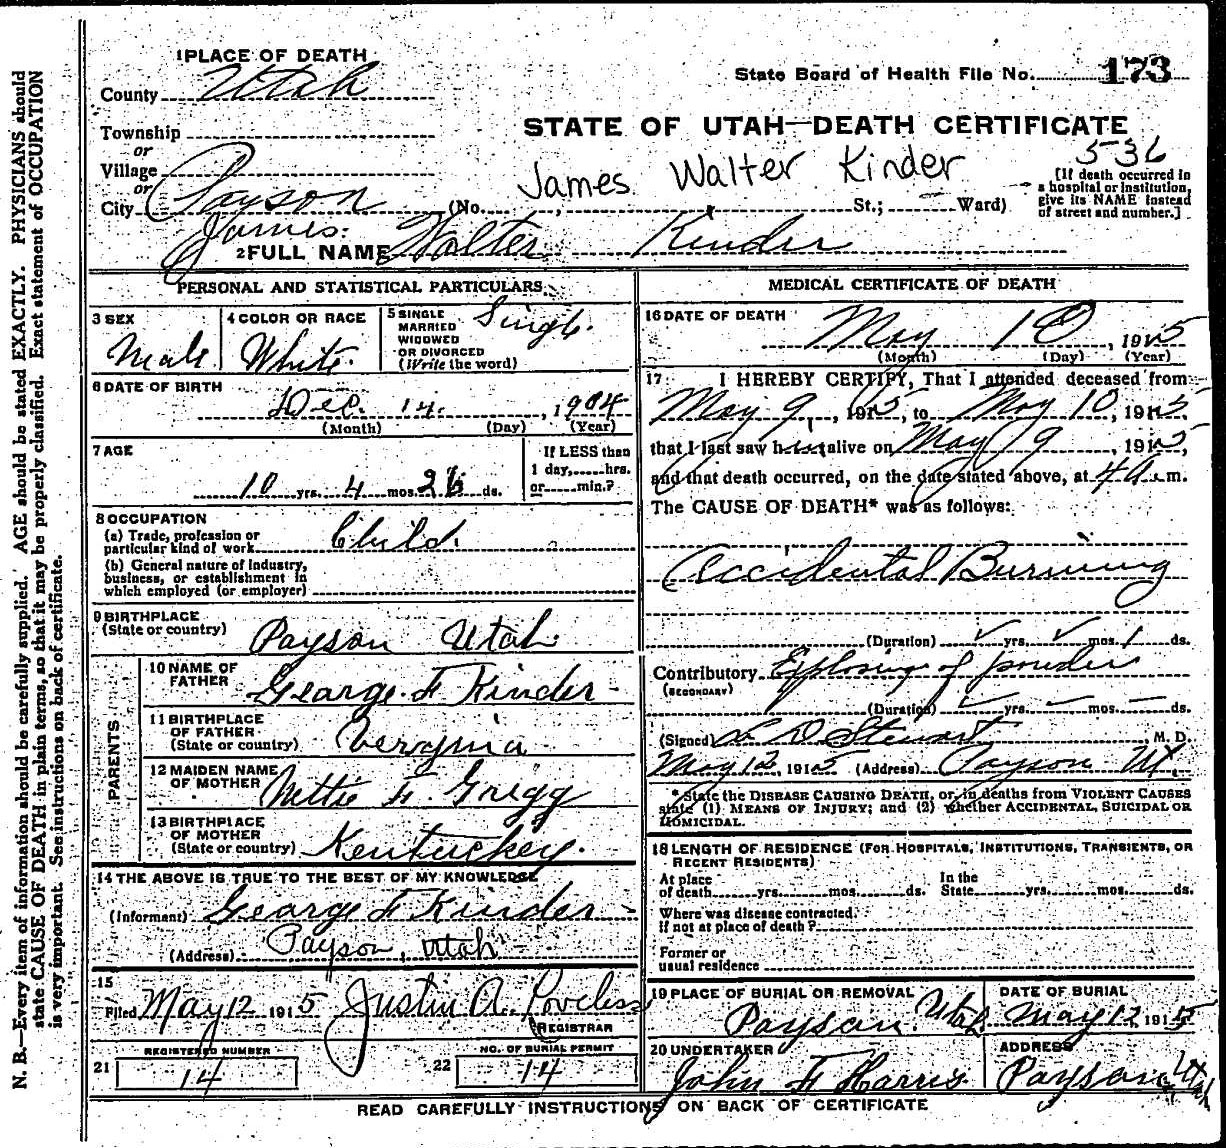 N. B.—Every item of information should be carefully supplied. AGE should be stated EXACTLY. PHYSICIANS should
state CAUSE OF DEATH in plain terms, so that it may be properly classified. Exact statement of OCCUPATION
is very important. See instructions on back of certificate.
1 PLACE OF DEATH
State Board of Health File No. 173
County Utah
Township
STATE OF UTAH—DEATH CERTIFICATE
or
Village
536
James Walter Kinder
or
City Payson (No. , St.; Ward)
[If death occurred in
a hospital or institution,
give its NAME instead
of street and number.]
James
2 FULL NAME Walter Kinder
PERSONAL AND STATISTICAL PARTICULARS
3 SEX
Male
4 COLOR OR RACE
White
5 SINGLE
MARRIED
WIDOWED
OR DIVORCED
(Write the word)
Single
6 DATE OF BIRTH
Dec. 14 , 1904
(Month) (Day) (Year)
7 AGE
10 yrs. 4 mos. 26 ds.
If LESS than
1 day, hrs.
or min.?
8 OCCUPATION
(a) Trade, profession or
particular kind of work Child
(b) General nature of industry,
business, or establishment in
which employed (or employer)
9 BIRTHPLACE
(State or country)
Payson Utah
PARENTS
10 NAME OF
FATHER George F Kinder
11 BIRTHPLACE
OF FATHER
(State or country) Verginia
12 MAIDEN NAME
OF MOTHER Nettie F. Grigg
13 BIRTHPLACE
OF MOTHER
(State or country) Kentuckey.
14 THE ABOVE IS TRUE TO THE BEST OF MY KNOWLEDGE
(Informant) George F Kinder
(Address) Payson, Utah
15
Filed May 12 1915 Justin A. Loveless
REGISTRAR
REGISTERED NUMBER
21 14
NO. OF BURIAL PERMIT
22 14
MEDICAL CERTIFICATE OF DEATH
16 DATE OF DEATH
May 10 , 1915
(Month) (Day) (Year)
17 I HEREBY CERTIFY, That I attended deceased from
May 9 , 1915, to May 10, 1915,
that I last saw him alive on May 9 , 1915,
and that death occurred, on the date stated above, at 4 A m.
The CAUSE OF DEATH* was as follows:
Accidental Burning
(Duration) yrs. mos. 1 ds.
Contributory Explosion of powder
(SECONDARY)
(Duration) yrs. mos. ds.
(Signed) L D Stewart , M. D.
May 12, 1915 (Address) Payson Ut.
* State the DISEASE CAUSING DEATH, or, in deaths from VIOLENT CAUSES
state (1) MEANS OF INJURY; and (2) whether ACCIDENTAL, SUICIDAL OR
HOMICIDAL.
18 LENGTH OF RESIDENCE (FOR HOSPITALS, INSTITUTIONS, TRANSIENTS, OR
RECENT RESIDENTS)
At place
of death yrs. mos. ds.
In the
State yrs. mos. ds.
Where was disease contracted.
If not at place of death?
Former or
usual residence
19 PLACE OF BURIAL OR REMOVAL
Payson. Utah
DATE OF BURIAL
May 12, 1915
20 UNDERTAKER
John F Harris
ADDRESS
Payson Utah
READ CAREFULLY INSTRUCTIONS ON BACK OF CERTIFICATE